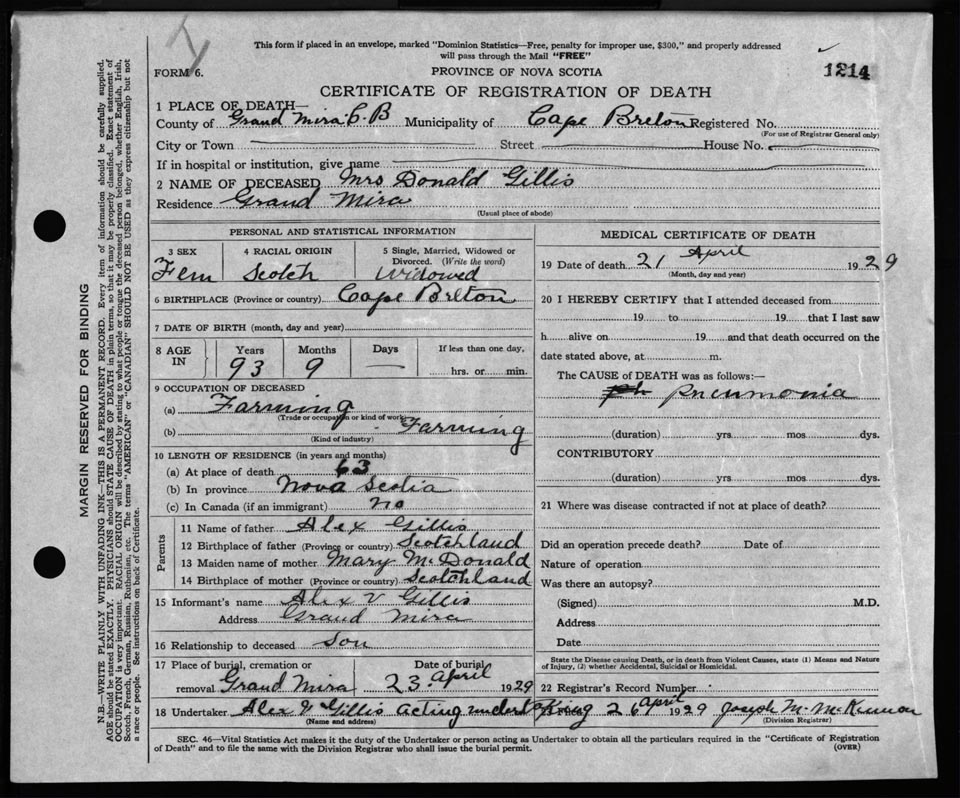 This form if placed in an envelope, marked "Dominion Statistics—Free, penalty for improper use, $300," and properly addressed
will pass through the Mail "FREE"
FORM 6.
PROVINCE OF NOVA SCOTIA
1214
CERTIFICATE OF REGISTRATION OF DEATH
1 PLACE OF DEATH—
County of Grand Mira C. B Municipality of Cape Breton Registered No.
(For use of Registrar General only)
City or Town Street House No.
If in hospital or institution, give name
2 NAME OF DECEASED Mrs Donald Gillis
Residence Grand Mira
(Usual place of abode)
PERSONAL AND STATISTICAL INFORMATION
3 SEX 4 RACIAL ORIGIN 5 Single, Married, Widowed or
Divorced. (Write the word)
Fem Scotch Widowed
6 BIRTHPLACE (Province or country) Cape Breton
7 DATE OF BIRTH (month, day and year)
8 AGE IN Years Months Days If less than one day,
93 9 — hrs. or min.
9 OCCUPATION OF DECEASED
(a) Farming
(Trade or occupation or kind of work)
(b) Farming
(Kind of industry)
10 LENGTH OF RESIDENCE (in years and months)
(a) At place of death 63
(b) In province Nova Scotia
(c) In Canada (if an immigrant) no
Parents
11 Name of father Alex Gillis
12 Birthplace of father (Province or country) Scotchland
13 Maiden name of mother Mary McDonald
14 Birthplace of mother (Province or country) Scotchland
15 Informant's name Alex V Gillis
Address Grand Mira
16 Relationship to deceased Son
17 Place of burial, cremation or Date of burial
removal Grand Mira 23 April 1929
18 Undertaker Alex V Gillis acting undertaking
(Name and address)
MEDICAL CERTIFICATE OF DEATH
19 Date of death 21 April 1929
(Month, day and year)
20 I HEREBY CERTIFY that I attended deceased from
19 to 19 that I last saw
h alive on 19 and that death occurred on the
date stated above, at m.
The CAUSE of DEATH was as follows:—
ph pneumonia
(duration) yrs mos dys.
CONTRIBUTORY
(duration) yrs. mos. dys.
21 Where was disease contracted if not at place of death?
Did an operation precede death? Date of
Nature of operation
Was there an autopsy?
(Signed) M.D.
Address
Date
State the Disease causing Death, or in death from Violent Causes, state (1) Means and Nature
of Injury, (2) whether Accidental, Suicidal or Homicidal.
22 Registrar's Record Number
26 April 1929 Joseph M. McKinnon
(Division Registrar)
SEC. 46—Vital Statistics Act makes it the duty of the Undertaker or person acting as Undertaker to obtain all the particulars required in the "Certificate of Registration
of Death" and to file the same with the Division Registrar who shall issue the burial permit.
(OVER)
MARGIN RESERVED FOR BINDING
N.B.—WRITE PLAINLY WITH UNFADING INK—THIS IS A PERMANENT RECORD. Every item of information should be carefully supplied.
AGE should be stated EXACTLY. PHYSICIANS should STATE CAUSE OF DEATH in plain terms, so that it may be properly classified. Exact statement of
OCCUPATION is very important. RACIAL ORIGIN will be described by stating to what people or tongue the deceased person belonged, whether English, Irish,
Scotch, French, German, Russian, Ruthenian, etc. The terms "AMERICAN" or "CANADIAN" SHOULD NOT BE USED as they express citizenship but not
a race or people. See instructions on back of Certificate.